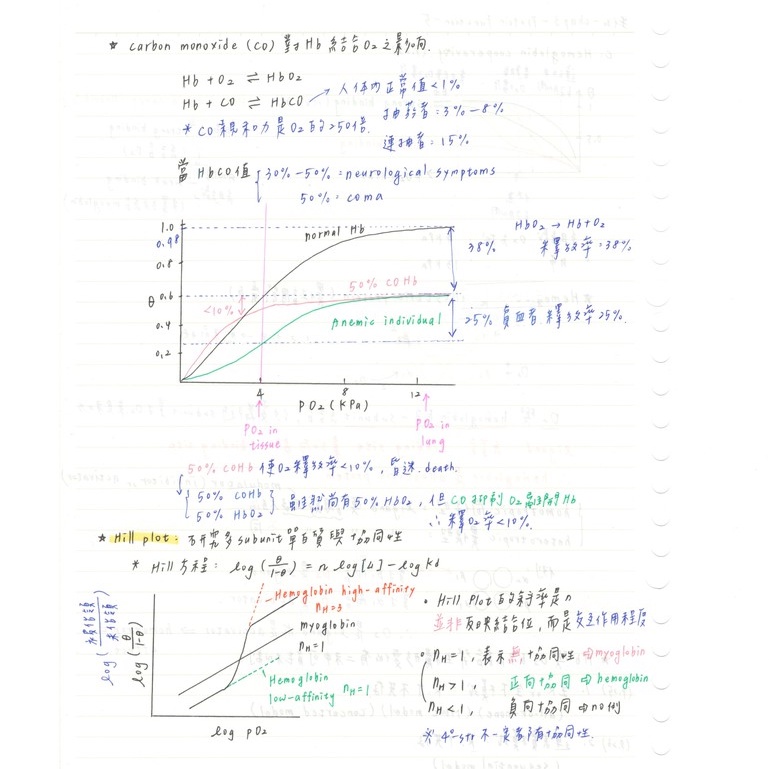 ☆ carbon monoxide (CO) 對 Hb 結合 O₂ 之影响.
Hb + O₂ ⇌ HbO₂
Hb + CO ⇌ HbCO → 人体内正常值 <1%
抽菸者: 3% – 8%
* CO 親和力是 O₂ 的 >250倍.
連抽者: 15%
當 HbCO 值 { 30% – 50% = neurological symptoms
50% = coma
1.0
0.98
0.8
θ 0.6
0.4
0.2
normal Hb
50% COHb
<10%
Anemic individual
38%
HbO₂ → Hb + O₂
釋放率 = 38%
25% 貧血者 釋放率 25%.
4 8 12
PO₂ (kPa)
PO₂ in tissue
PO₂ in lung
50% COHb 使 O₂ 釋放率 <10%, death.
{ 50% COHb
50% HbO₂ } 雖然尚有 50% HbO₂, 但 CO 抑制 O₂ 離開 Hb
∴ 釋 O₂ 率 <10%.
☆ Hill plot: 研究多 subunit 蛋白質與協同性
* Hill 方程: log (θ/1-θ) = n log [L] – log Kd
log (θ/1-θ)
Hemoglobin high-affinity
nH=3
myoglobin
nH=1
Hemoglobin
low-affinity nH=1
log pO₂
• Hill Plot 的斜率是 n
並非反映結合位, 而是交互作用程度
• nH=1, 表示無協同性 ⇨ myoglobin
nH>1, 正向協同 ⇨ hemoglobin
nH<1, 負向協同 ⇨ no 例
※ 4°-str 不一定都有協同性.